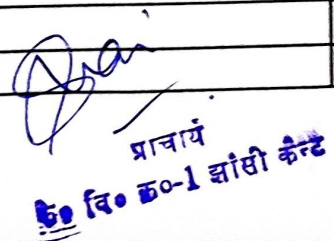 प्राचार्य
के० वि० क्र०-1 झांसी केन्ट